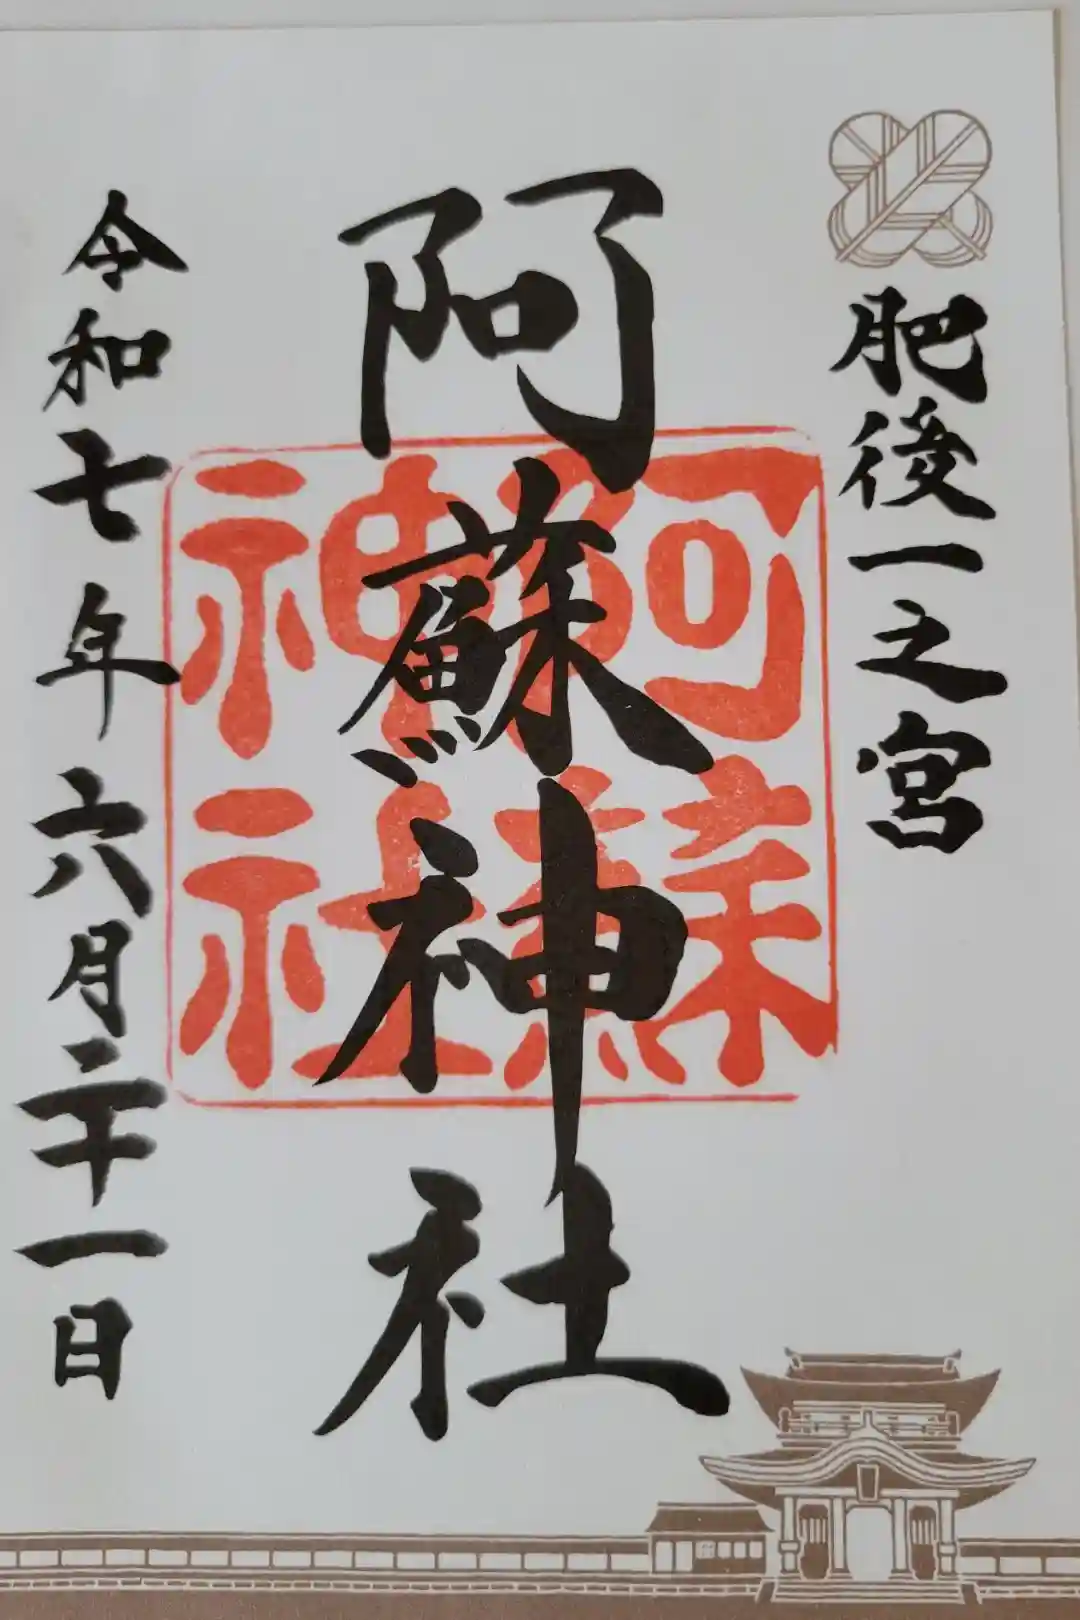 肥後一之宮
阿蘇神社
阿蘇神社
令和七年六月二十一日